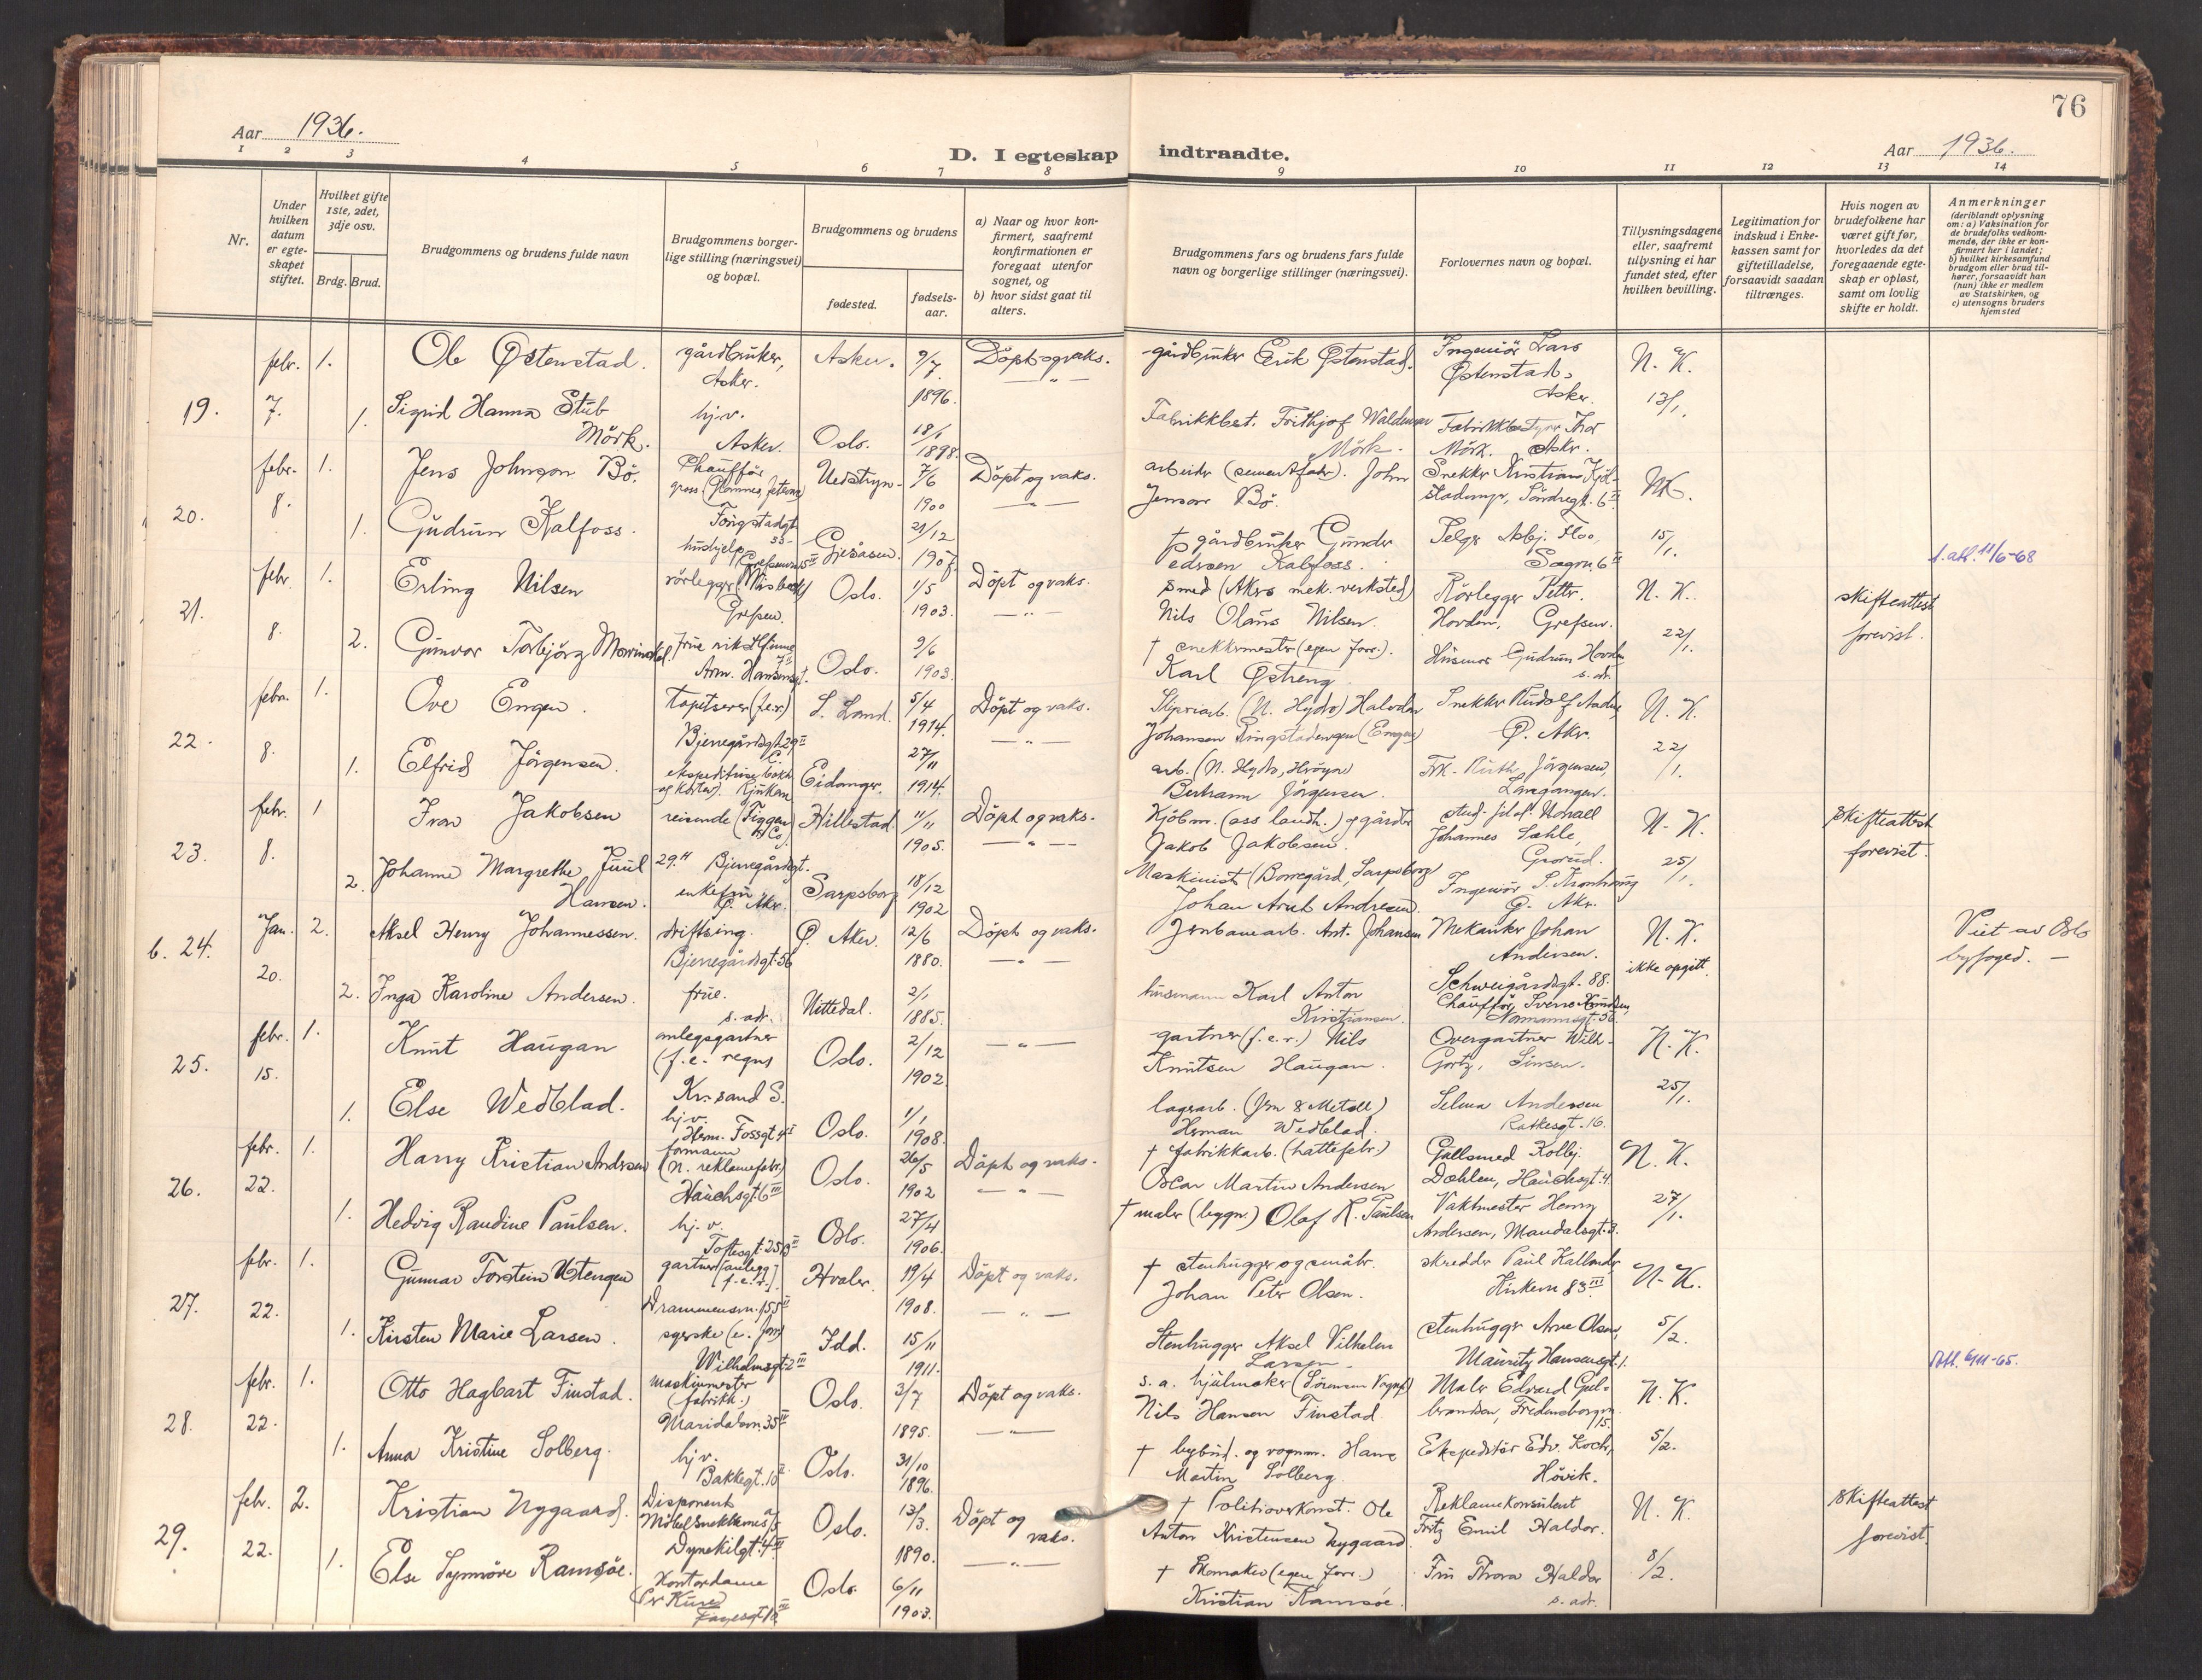 76
Aar 1936.
D. I egteskap indtraadte.
Aar 1936.
1 2 3 4 5 6 7 8 9 10 11 12 13 14
Nr.
Under hvilken datum er egteskapet stiftet.
Hvilket gifte 1ste, 2det, 3dje osv.
Brdg. Brud.
Brudgommens og brudens fulde navn
Brudgommens borgerlige stilling (næringsvei) og bopæl.
Brudgommens og brudens
fødested.
fødselsaar.
a) Naar og hvor konfirmert, saafremt konfirmationen er foregaat utenfor sognet, og
b) hvor sidst gaat til alters.
Brudgommens fars og brudens fars fulde navn og borgerlige stillinger (næringsvei).
Forlovernes navn og bopæl.
Tillysningsdagene eller, saafremt tillysning ei har fundet sted, efter hvilken bevilling.
Legitimation for indskud i Enkekassen samt for giftetilladelse, forsaavidt saadan tiltrænges.
Hvis nogen av brudefolkene har været gift før, hvorledes da det foregaaende egteskap er opløst, samt om lovlig skifte er holdt.
Anmerkninger (deriblandt oplysning om: a) Vaksination for de brudefolks vedkommende, der ikke er konfirmert her i landet; b) hvilket kirkesamfund brudgom eller brud tilhører, forsaavidt han (hun) ikke er medlem av Statskirken, og c) utensogns bruders hjemsted
19. febr. 7. 1. Ole Østenstad. gårdbruker, Asker. Asker. 9/7 1896. Döpt og vaks. gårdbruker Erik Østenstad. Ingeniör Lars Østenstad, Asker. N. K. 13/1.
1. Sigrid Hanna Stub Mörk. hj.v. Asker. Oslo. 18/1 1898. — " — Fabrikkbest. Frithjof Waldemar Mörk. Fabrikkbestyrer Thor Mörk. Asker.
20. febr. 8. 1. Jens Johnson Bö. Chaufför Nedstryn. 7/6 1900 Döpt og vaks. arbeider John Jensen Bö. Snekker Kristian N.K. 15/1.
1. Gudrun Kalfoss. hushjelp Gjesåsen. 21/12 1907 — " — † gårdbruker Gunder Kalfoss. Selger Asbj. Floo, Sagvn 6
21. febr. 8. 1. Erling Nilsen rörlegger Grefsen. Oslo. 1/5 1903. Döpt og vaks. smed (Akers mek. verksted) Nils Olaus Nilsen. Rörlegger Petter Hovden, Grefsen. N. K. 22/1. skifteattest forevist. 1. att. 11/6-68
2. Gunvor Torbjörg frue Arm. Hansensgt. Oslo. 9/6 1903. — " — † snekkermester (egen forr.). Karl Østreng Husmor Gudrun Hovden s. adr.
22. febr. 8. 1. Ove Engen. tapetserer (f.e.r.) Bjerregårdsgt. 29 II S. Land. 5/4 1914. Döpt og vaks. (N. Hydro) Halvdan Johansen (Engen) Snekker Rudolf Ö. Aker. N. K. 22/1.
1. Elfrid Jörgensen. Rjukan Eidanger. 27/11 1914. — " — arb. (N. Hydro, Heröya) Bertram Jörgensen. Frk. Ruth Jörgensen,
23. febr. 8. 1 Ivar Jakobsen reisende Hillestad 11/11 1905. Döpt og vaks. Kjöbm. (ass landh.) og gårdbr Jakob Jakobsen. stud. filol. Johannes Sæhle, Grorud. N. K. 25/1. skifteattest forevist.
2. Johanne Margrethe Juul Hansen. 29. II Bjerregårdsgt. enkefru Ö. Aker. Sarpsborg 18/12 1902 — " — Maskinist (Borregård, Sarpsborg) Johan Andresen. Ingeniör Ö. Aker.
b. 24. Jan. 20. 2. Aksel Henry Johannessen. driftsing. Bjerregårdsgt. 56 Ö. Aker. 12/6 1880. Döpt og vaks. Jernbanearb. Ant. Johansen Mekaniker Johan Andersen. Schweigårdsgt. 88. N. K. ikke opgitt. Viet av Oslo byfoged. —
2. Inga Karoline Andersen. frue. s. adr. Nittedal. 2/1 1885. — " — husmann Karl Anton Kristiansen. Chauffør Sverre Knudsen, Normannsgt. 56.
25. febr. 15. 1. Knut Haugan anlegsgartner (f.e. regns Kr. sand S. Oslo. 2/12 1902. — " — gartner (f.e.r.) Nils Knutsen Haugan. Overgartner Wilh. Gortz, Sinsen. N. K. 25/1.
1. Else Wedblad. hj.v. Herm. Fossgt 4 Oslo. 1/1 1908. lagerarb. (Jern & Metall) Herman Wedblad. Selma Andersen Ratkesgt. 16.
26. febr. 22. 1. Harry Kristian Andersen formann (N. reklamefabr.) Hauchsgt. 6 III Oslo. 26/5 1902 Döpt og vaks. † fabrikkarb. (hattefabr.) Oscar Martin Andersen Gullsmed Kolbj. Dæhlen, Hauchsgt. 4. N. K. 27/1.
1. Hedvig Raudine Paulsen. hj.v. Toftesgt. 25 Oslo. 27/4 1906. — " — † maler (byggn.) Olaf K. Paulsen Vaktmester Henry Andersen, Mandalsgt. 3.
27. febr. 22. 1. Gunnar Torstein Utengen gartner [anlegg f.e.r.] Drammensvn. 155 II Hvaler. 19/4 1908. Döpt og vaks. † stenhugger og småbr. Johan Peter Olsen. skredder Paul Kirkevn 83 III N. K. 5/2.
1. Kirsten Marie Larsen. syerske (e. forr.) Wilhelmsgt. 2 III Idd. 15/11 1911. — " — Stenhugger Aksel Vilhelm Larsen Stenhugger Arne Olsen, Mauritz Hansensgt. 1.
28. febr. 22. 1. Otto Hagbart Finstad. maskinmester (fabrikk.) Maridalsvn. 35 Oslo. 3/7 1895. Döpt og vaks. s.a. hjulmaker Nils Hansen Finstad. Maler Edvard Gulbrandsen, Fredensborgvn. 15. N. K. 5/2. Att. 6/11-65.
1. Anna Kristine Solberg. hj.v. Bakkegt. 10 Oslo. 31/10 1896. — " — † bybud. og vognm. Hans Martin Solberg. Ekspeditör Edv. Koch, Hövik.
29. febr. 22. 2. Kristian Nygaard. Disponent Dynekilgt. 4 III Oslo. 13/3. 1890. Döpt og vaks. † Politioverkonst. Ole Anton Kristensen Nygaard. Reklamekonsulent Fritz Emil Haldor. N. K. 8/2. skifteattest forevist.
1. Else Synnöve Ramsöe. Kontordame Per Kure Fagesgt Oslo. 6/11 1903. — " — † Skomaker (egen forr.) Kristian Ramsöe. Fru Thora Haldor s. adr.